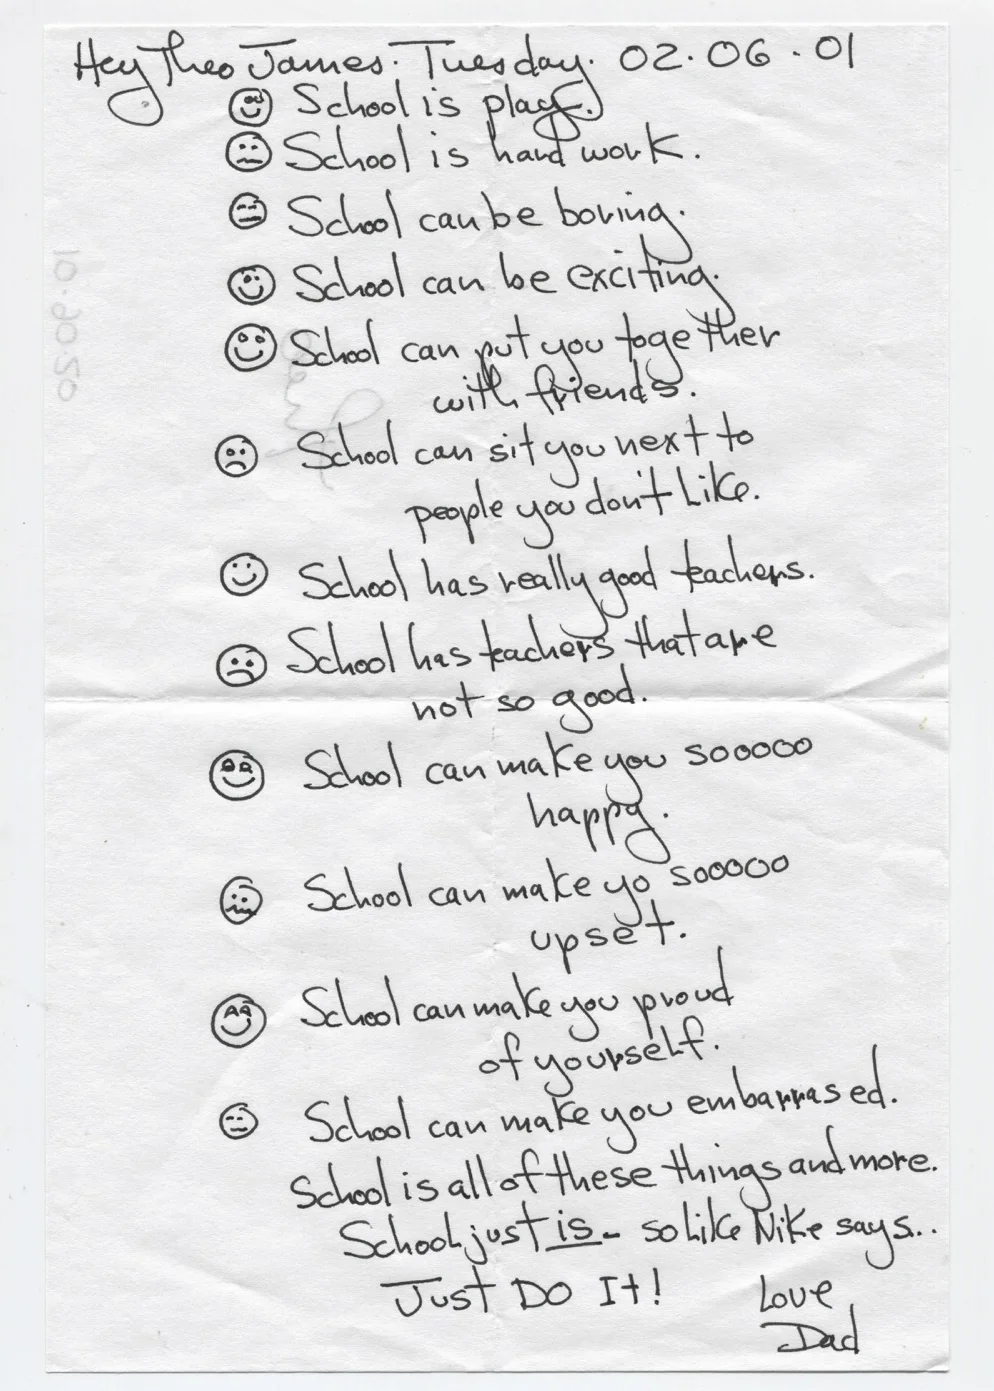 Hey Theo James. Tuesday. 02.06.01
School is play.
School is hard work.
School can be boring.
School can be exciting.
School can put you together
with friends.
School can sit you next to
people you don't like.
School has really good teachers.
School has teachers that are
not so good.
School can make you sooooo
happy.
School can make yo sooooo
upset.
School can make you proud
of yourself.
School can make you embarrased.
School is all of these things and more.
School just is - so like Nike says..
Just DO It!
Love
Dad